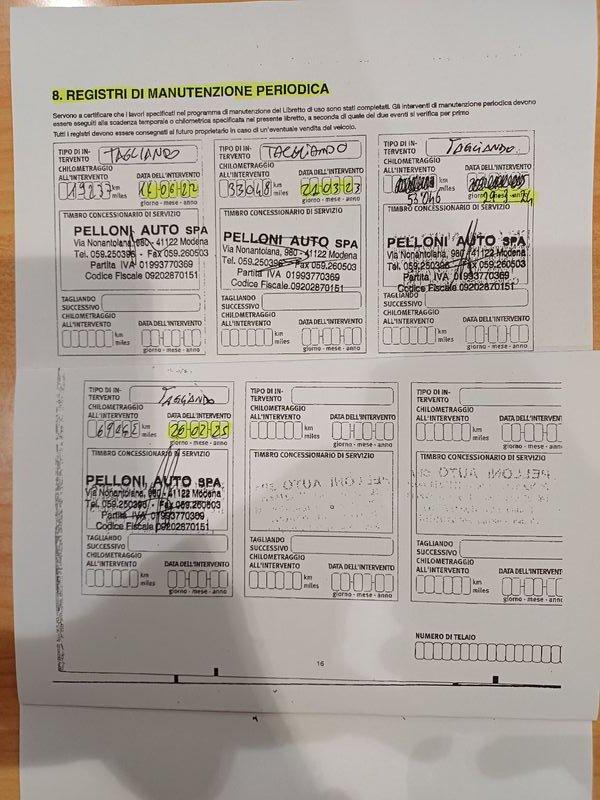 8. REGISTRI DI MANUTENZIONE PERIODICA
Servono a certificare che i lavori specificati nel programma di manutenzione del Libretto di uso sono stati completati. Gli interventi di manutenzione periodica devono
essere eseguiti alla scadenza temporale o chilometrica specificata nel presente libretto, a seconda di quale dei due eventi si verifica per primo
Tutti i registri devono essere consegnati al futuro proprietario in caso di un'eventuale vendita del veicolo.
TIPO DI IN-
TERVENTO
TAGLIANDO
CHILOMETRAGGIO
ALL'INTERVENTO
DATA DELL'INTERVENTO
km
miles
giorno - mese - anno
TIMBRO CONCESSIONARIO DI SERVIZIO
PELLONI AUTO SPA
Via Nonantolana, 980 - 41122 Modena
Tel. 059.250396 - Fax 059.260503
Partita IVA 01993770369
Codice Fiscale 09202870151
TAGLIANDO
SUCCESSIVO
CHILOMETRAGGIO
ALL'INTERVENTO
DATA DELL'INTERVENTO
km
miles
giorno - mese - anno
TIPO DI IN-
TERVENTO
TAGLIANDO
CHILOMETRAGGIO
ALL'INTERVENTO
DATA DELL'INTERVENTO
33048 km
miles
21 03 23
giorno - mese - anno
TIMBRO CONCESSIONARIO DI SERVIZIO
PELLONI AUTO SPA
Via Nonantolana, 980 - 41122 Modena
Tel. 059.250396 - Fax 059.260503
Partita IVA 01993770369
Codice Fiscale 09202870151
TAGLIANDO
SUCCESSIVO
CHILOMETRAGGIO
ALL'INTERVENTO
DATA DELL'INTERVENTO
km
miles
giorno - mese - anno
TIPO DI IN-
TERVENTO
TAGLIANDO
CHILOMETRAGGIO
ALL'INTERVENTO
DATA DELL'INTERVENTO
km
miles
giorno - mese - anno
TIMBRO CONCESSIONARIO DI SERVIZIO
PELLONI AUTO SPA
Via Nonantolana, 980 - 41122 Modena
Tel. 059.250396 - Fax 059.260503
Partita IVA 01993770369
Codice Fiscale 09202870151
TAGLIANDO
SUCCESSIVO
CHILOMETRAGGIO
ALL'INTERVENTO
DATA DELL'INTERVENTO
km
miles
giorno - mese - anno
TIPO DI IN-
TERVENTO
TAGLIANDO
CHILOMETRAGGIO
ALL'INTERVENTO
DATA DELL'INTERVENTO
km
miles
26 02 25
giorno - mese - anno
TIMBRO CONCESSIONARIO DI SERVIZIO
PELLONI AUTO SPA
Via Nonantolana, 980 - 41122 Modena
Tel. 059.250396 - Fax 059.260503
Partita IVA 01993770369
Codice Fiscale 09202870151
TAGLIANDO
SUCCESSIVO
CHILOMETRAGGIO
ALL'INTERVENTO
DATA DELL'INTERVENTO
km
miles
giorno - mese - anno
TIPO DI IN-
TERVENTO
CHILOMETRAGGIO
ALL'INTERVENTO
DATA DELL'INTERVENTO
km
miles
giorno - mese - anno
TIMBRO CONCESSIONARIO DI SERVIZIO
TAGLIANDO
SUCCESSIVO
CHILOMETRAGGIO
ALL'INTERVENTO
DATA DELL'INTERVENTO
km
miles
giorno - mese - anno
TIPO DI IN-
TERVENTO
CHILOMETRAGGIO
ALL'INTERVENTO
DATA DELL'INTERVENTO
km
miles
giorno - mese - anno
TIMBRO CONCESSIONARIO DI SERVIZIO
PELLONI AUTO
TAGLIANDO
SUCCESSIVO
CHILOMETRAGGIO
ALL'INTERVENTO
DATA DELL'INTERVENTO
km
miles
giorno - mese - anno
NUMERO DI TELAIO
16